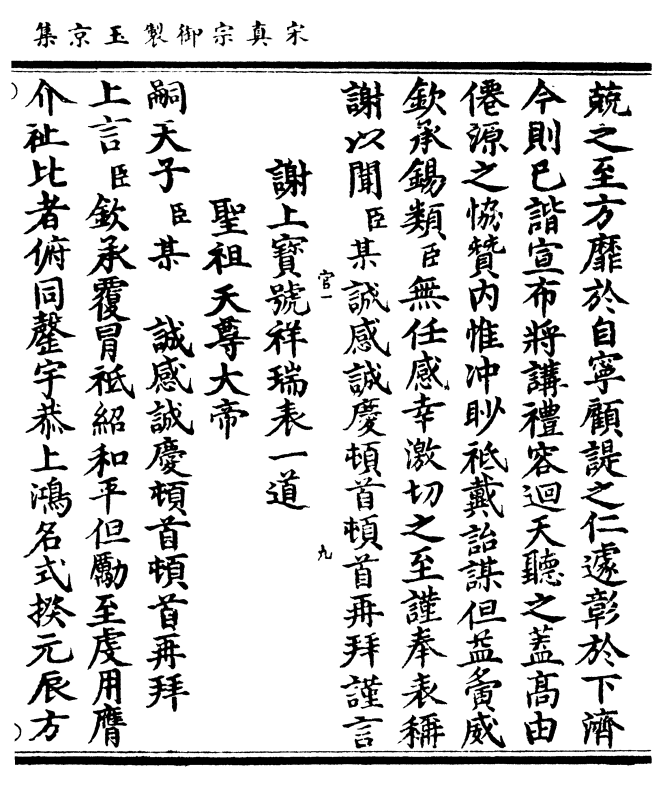 宋真宗御製玉京集
兢之至方靡於自寧顧諟之仁遽彰於下濟
今則已諧宣布將講禮容迴天聽之蓋高由
僊源之恊贊內惟冲眇祗戴詒謀但益夤威
欽承錫類臣無任感幸激切之至謹奉表稱
謝以聞臣某誠感誠慶頓首頓首再拜謹言
宫一
九
謝上寶號祥瑞表一道
聖祖天尊大帝
嗣天子臣某 誠感誠慶頓首頓首再拜
上言臣欽承覆冐祗紹和平但勵至虔用膺
介祉比者俯同罄宇恭上鴻名式揆元辰方